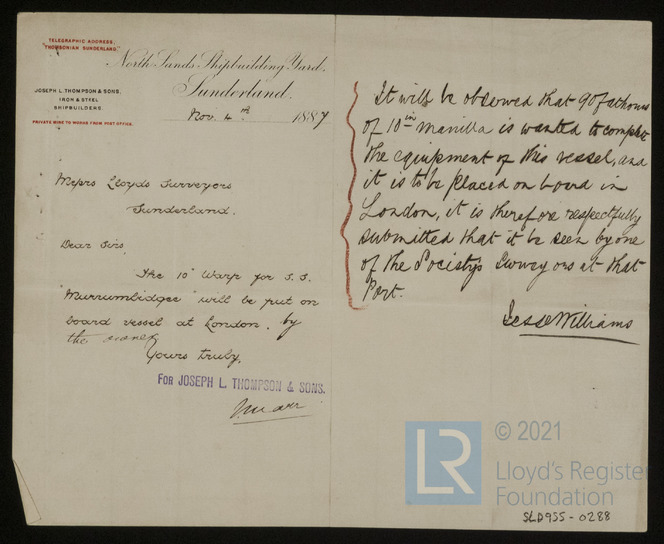 TELEGRAPHIC ADDRESS,
"THOMSONIAN SUNDERLAND."
North Sands Shipbuilding Yard,
Sunderland.
JOSEPH L. THOMPSON & SONS.
IRON & STEEL
SHIPBUILDERS.
PRIVATE WIRE TO WORKS FROM POST OFFICE.
Nov. 4th 1887
Messrs Lloyds Surveyors
Sunderland.
Dear Sirs,
The 10" Warp for S.S.
"Murrumbidgee" will be put on
board vessel at London. by
the owner
Yours truly,
FOR JOSEPH L. THOMPSON & SONS.
It will be observed that 90 fathoms
of 10in Manilla is wanted to complete
the equipment of this vessel, and
it is to be placed on board in
London, it is therefore respectfully
submitted that it be seen by one
of the Society's Surveyors at that
Port.
Jesse Williams
LR
© 2021
Lloyd's Register
Foundation
SLD955-0288